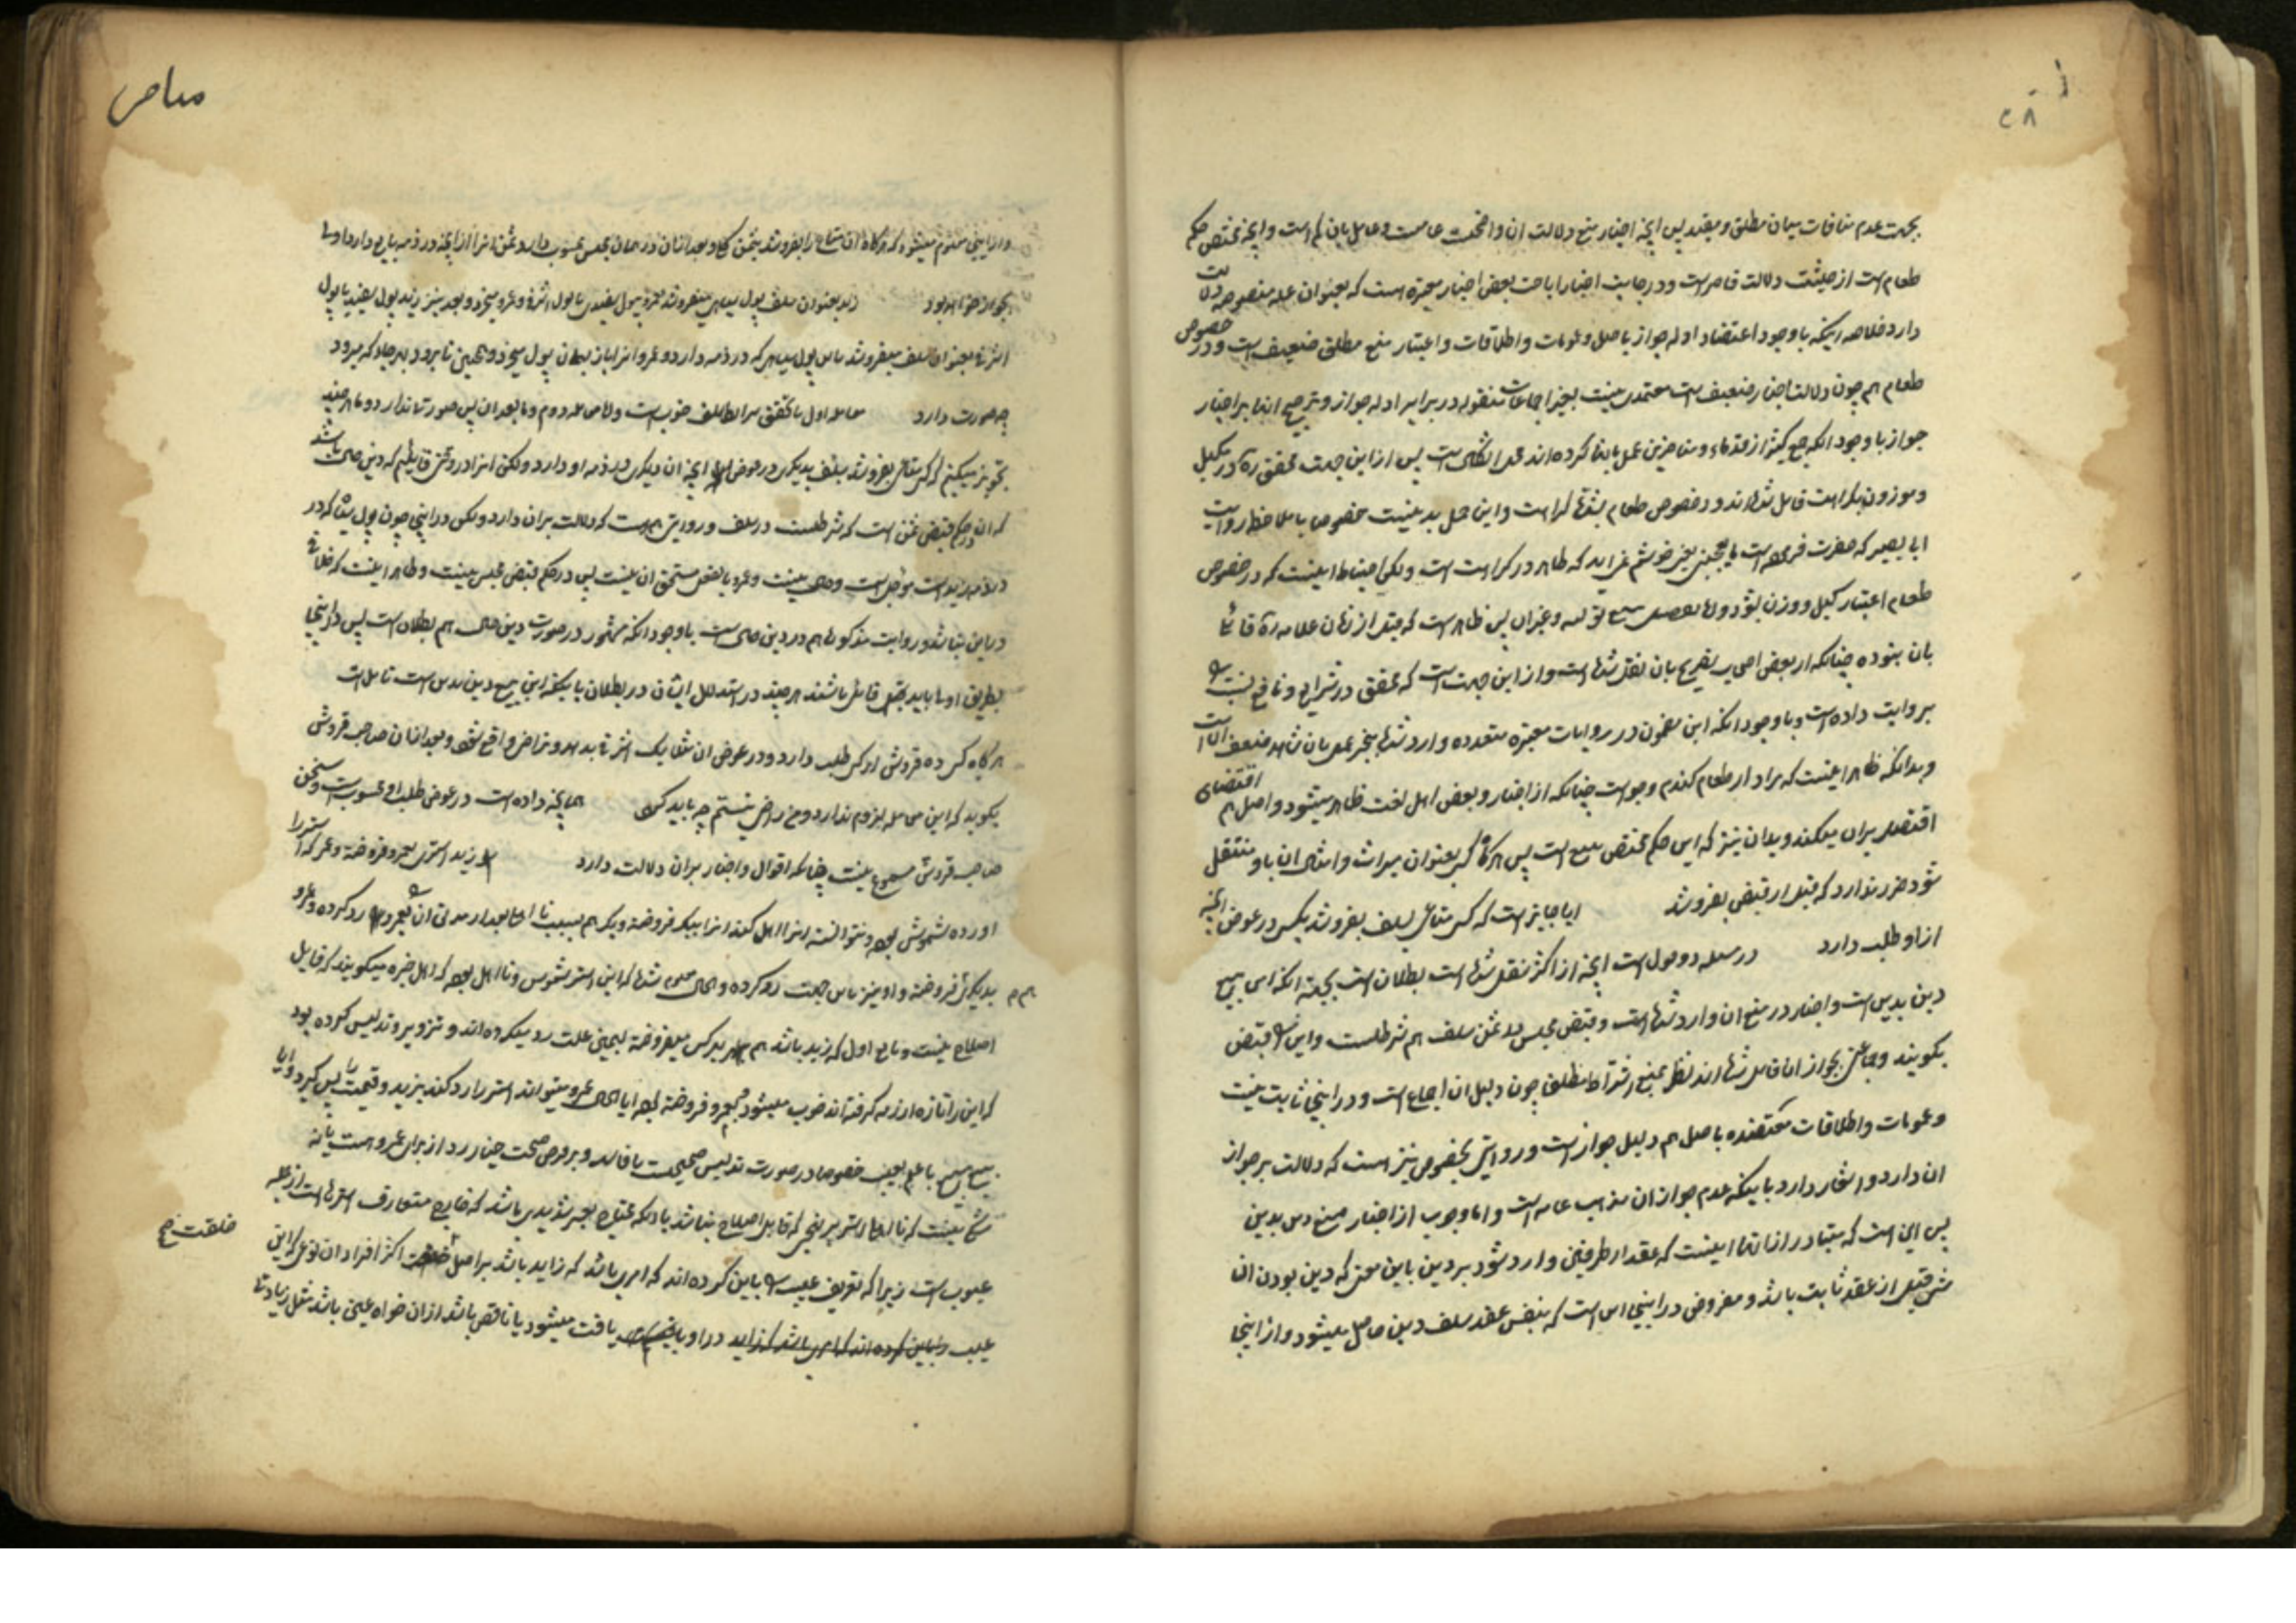 ۲۸
بجهت عدم منافات میان مطلق و مقید پس آنچه اخبار منع دلالت ان واضحست عامست و عامل بان کم است و آنچه مختص حکم
طعام است از حیثیت دلالت قاصر است و در جانب اخبار اباحت بعض اخبار معتبره است که بعنوان علة منصوصه دلالت
دارد خلاصه اینکه با وجود اعتضاد ادله جواز باصل و عمومات و اطلاقات و اعتبار منع مطلق ضعیف است و در خصوص
طعام هم چون دلالت اخبار ضعیف است معتمدی نیست بغیر اجماعات منقوله در برابر ادله جواز و ترجیح انها بر اخبار
جواز با وجود انکه جمع کثیر از قدماء و متاخرین عمل بانها کرده اند محل اشکال است پس از این جهت محقق ره در مکیل
و موزون بکراهت قایل شده اند و در خصوص طعام بشدة کراهت و این حمل بد نیست خصوصا با ملاحظه روایت
ابی بصیر که حضرت فرموده است لا یعجبنی یعنی خوشم نمی اید که ظاهر در کراهت است ولکن احتیاط اینست که در خصوص
طعام اعتبار کیل و وزن بشود و اما تفصیل بیع تولیه و غیر ان پس ظاهر است که قبل از زمان علامه ره قائلی
بان نبوده چنانکه از بعض اصحاب تصریح بان نقل شده است و از این جهت است که محقق در شرایع و نافع نسبت
بروایت داده است و با وجود انکه این مضمون در روایات معتبره متعدده وارد شده هجر عمل بان شاهد ضعف انهاست
و بدانکه ظاهر اینست که مراد از طعام گندم و جو است چنانکه از اخبار و بعض اهل لغت ظاهر میشود و اصل هم اقتضای
اقتصار بر ان میکند و بدان نیز که این حکم مختص بیع است پس هرگاه کسی بعنوان میراث و امثال ان باو منتقل
شود ضرر ندارد که قبل از قبض بفروشد ایا جایز است که کسی متاعی بسلف بفروشد بکسی در عوض آنچه
از او طلب دارد در مسئله دو قول است آنچه از اکثر نقل شده است بطلان است بجهة انکه این بیع
دین بدین است و اخبار در منع ان وارد شده است و قبض مجلس ثمن سلف هم شرطست و این را قبض
نگویند و جماعتی بجواز ان قایل شده اند نظر بمنع اشتراط مطلق چون دلیل ان اجماع است و در اینجا ثابت نیست
و عمومات و اطلاقات معتضده باصل هم دلیل جواز است و روایتی بخصوص نیز است که دلالت بر جواز
ان دارد و اشعار دارد باینکه عدم جواز ان مذهب عامه است و اما جواب از اخبار منع دین بدین
پس این است که متبادر از انها اینست که عقد از طرفین وارد شود بر دین باین معنی که دین بودن ان
پیش قبل از عقد ثابت باشد و مفروض در اینجا این است که بنفس عقد سلف دین حاصل میشود و از اینجا
و از اینجا معلوم میشود که هرگاه ان متاع را بفروشد بثمن کلی و بعد از ان در همان مجلس محسوب دارد ثمن انرا از آنچه در ذمه بایع دارد اولی
بجواز خواهد بود زید بعنوان سلف پول سیاهی میفروشد بعمرو بپول سفیدی یا پول اشرفی و عمرو میخرد و بعد نیز زید پول سفید یا پول
اشرفی بعنوان سلف میفروشد باین پول سیاهی که در ذمه دارد و عمرو انرا باز بهمان پول میخرد و همچنین تا برود بهر جا که میرود
چه صورت دارد معامله اول با تحقق شرایط سلف خوبست و اما معامله دوم و ما بعد ان پس صورت ندارد و ما هر چند
تجویز میکنیم که کسی متاعی بفروشد بسلف بدیگری در عوض آنچه ان دیگری در ذمه او دارد ولکن انرا در وقتی قایلیم که دین حال باشد
که ان در حکم قبض ثمن است که شرطست در سلف و روایتی هست که دلالت بران دارد ولکن در اینجا چون پول سیاه که در
در ذمه زید است مؤجل است و حال نیست و عمرو بالفعل مستحق ان نیست پس در حکم قبض مجلس نیست و ظاهر اینست که خلافی
در این نباشد و روایت مذکور هم در دین حال است با وجود انکه مشهور در صورت دین حال هم بطلان است پس در اینجا
بطریق اولی باید بطلان قایل باشند هر چند در استدلال ایشان در بطلان باینکه این بیع دین بدین است تامل است
هرگاه کسی ده قروش از کسی طلب دارد و در عوض ان مثلا یک اشرفی بدهد و تراضی واقع شود و بعد از ان صاحب قروش
بگوید که این معامله لزوم ندارد و من راضی نیستم چه باید کرد همانچه داده است در عوض طلب او محسوب است و سخن
صاحب قروش مسموع نیست چنانکه اقوال و اخبار بران دلالت دارد هرگاه زید استری بعمرو فروخته و عمرو که استر را
اورده شموس بوده و نتوانسته انرا اهل کند انرا ببکر فروخته و بکر هم بسبب نااهلی بعد از مدتی ان را بعمرو رد کرده و عمرو
بدیگری فروخته و او نیز باین جهت رد کرده و الحال معلوم شده که این استر شموس و نااهل بوده که اهل خبره میگویند که قابل
اصلاح نیست و بایع اول که زید باشد هم بهر کس میفروخته بهمین علت رد میکرده اند و تزویر و تدلیس کرده بود
که این را تازه از رمه گرفته اند خوب میشود بعمرو فروخته بوده ایا الحال عمرو میتواند استر را رد کند بزید و قیمت را پس گیرد و ایا
بیع با علم بعیب خصوصا در صورت تدلیس صحیحست یا فاسد و بر فرض صحت خیار رد از برای عمرو هست یا نه
شکی نیست که نااهلی استر بر نحوی که قابل اصلاح نباشد یا انکه محتاج بجبر شدیدی باشد که خارج متعارف استرها است از جمله
عیوب است زیرا که تعریف عیب را باین کرده اند که امری باشد که زاید باشد بر اصل خلقت اکثر افراد ان نوعی که این
عیب در او یافت میشود یا ناقص باشد از ان خواه عینی باشد مثل زیادتی
خلقت صح